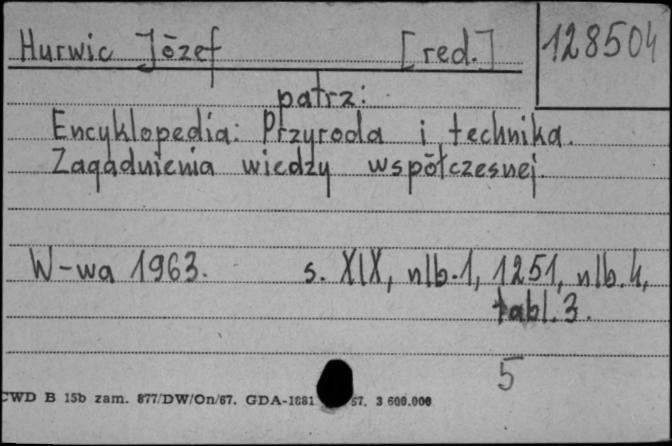 Hurwic Józef [red.] 128504
patrz:
Encyklopedia: Przyroda i technika.
Zagadnienia wiedzy współczesnej.
W-wa 1963. s. XIX, nlb.1, 1251, nlb.4,
tabl.3.
5
CWD B 15b zam. 877/DW/On/67. GDA-1681 57. 3 600.000